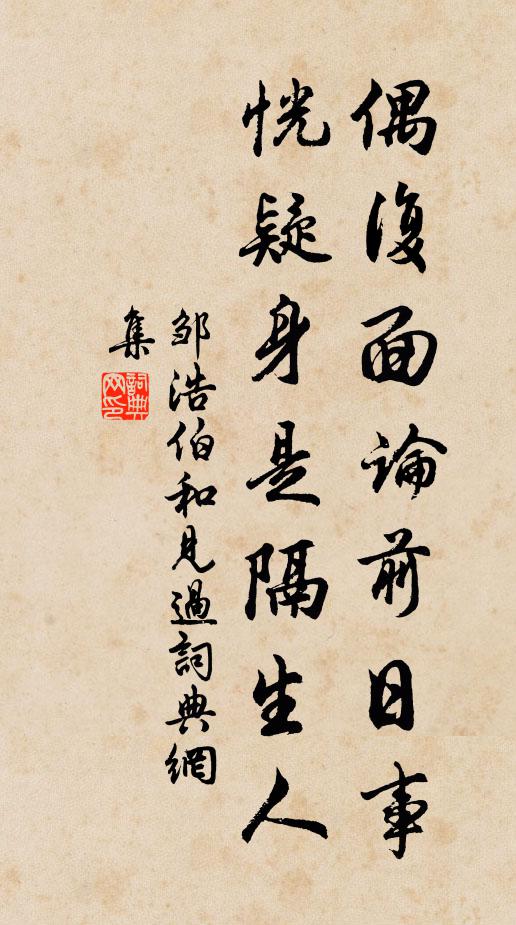 偶復面論前日事
恍疑身是隔生人
邹浩伯和見過詞典網
集
詞典
网印